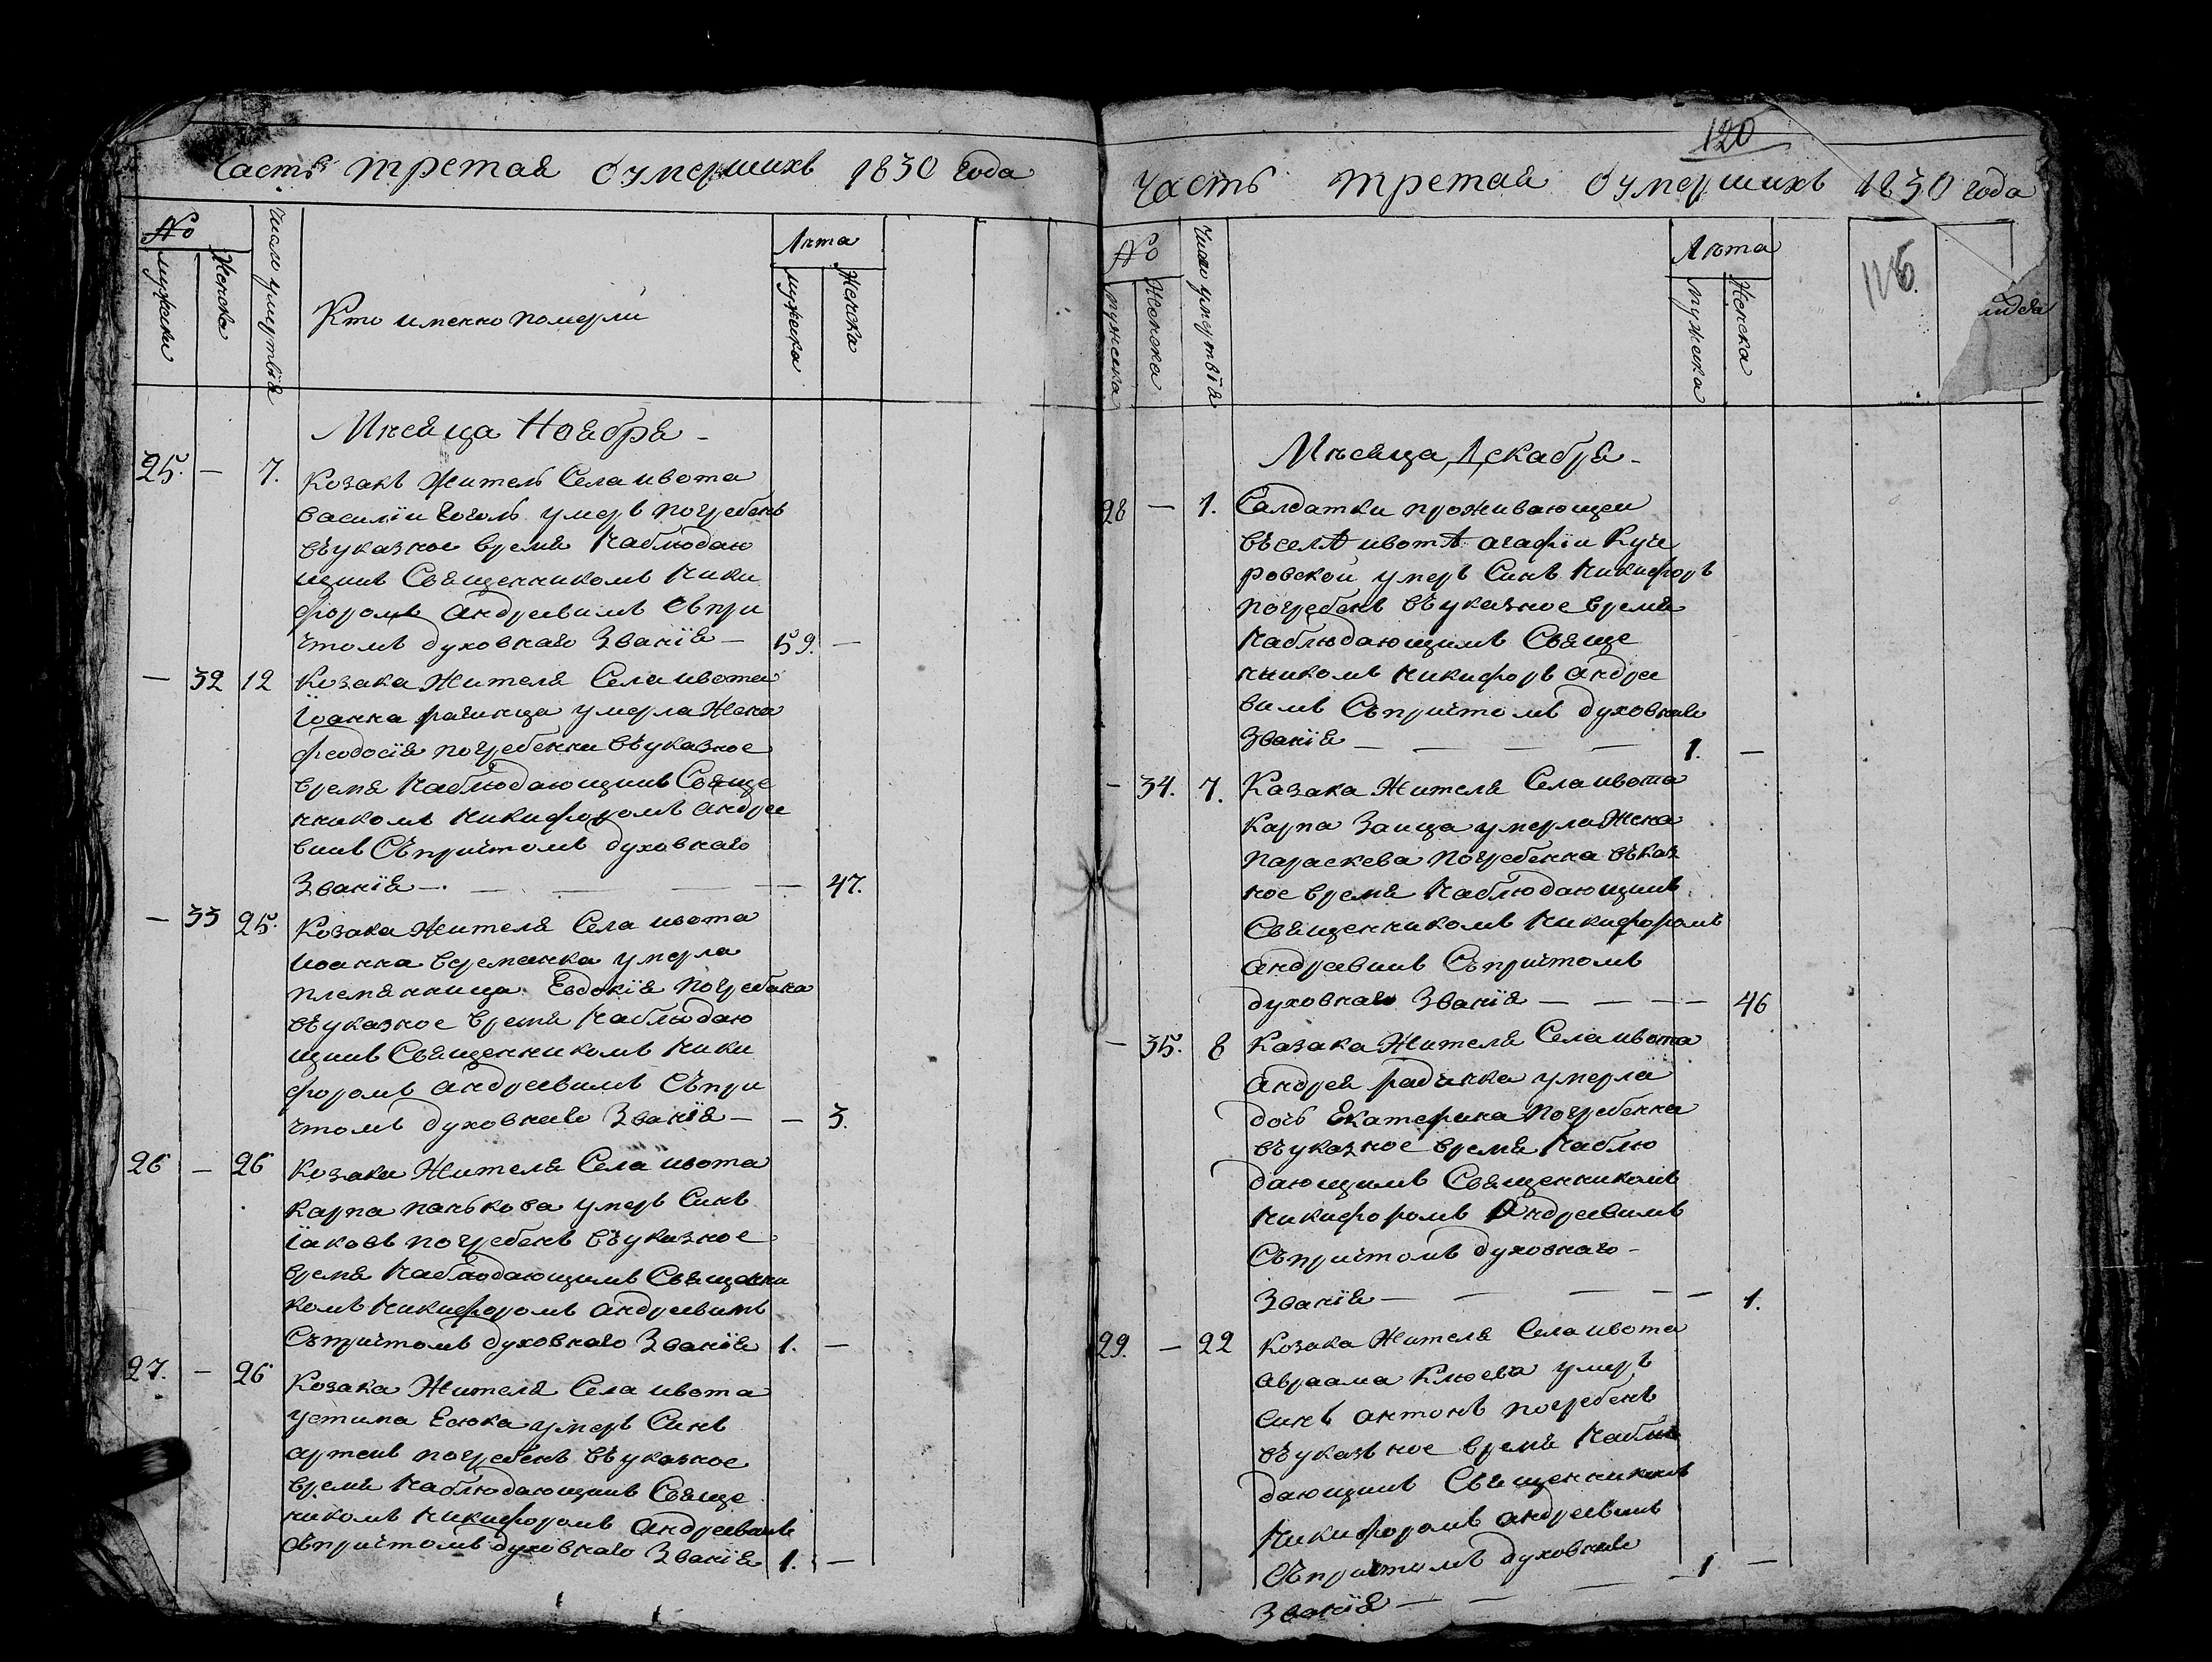 Часть третая о умершихъ 1830 года
№
мужска
Женска
Число умертвїя
Кто именно померли
Лѣта
мужска
Женска
Мѣсяца Ноября -
25. — 7. Козакъ Житель Села ивота
василїи Гоголь умеръ погребенъ
въуказное время Наблюдаю
щимъ Священникомъ Ники
форомъ андреевимъ съпри
чтомъ духовнаго Званїя — 59. —
— 32 12 Козака Жителя Села ивота
Їоанна умерла Жена
феодосїя погребенна въуказное
время Наблюдающимъ Свяще
нникомъ никифоромъ андрее
вимъ Съпричтомъ духовнаго
Званїя — . — — — — 47.
— 33 25. Козака Жителя Села ивота
иоанна веременка умерла
племянница Евдокїя погребена
въуказное время Наблюдаю
щимъ Священникомъ Ники
форомъ андреевимъ Съпри
чтомъ духовнаго Званїя — — 3.
26 — 26 Козака Жителя Села ивота
карпа панькова умеръ Синъ
їаковъ погребенъ въуказное
время Наблюдающимъ Священни
комъ Никифоромъ андреевимъ
Съпричтомъ духовнаго Званїя 1. —
27. — 26 Козака Жителя Села ивота
устима Есюка умеръ Синъ
артемъ погребенъ въуказное
время Наблюдающимъ Свяще
никомъ Никифоромъ андреевимъ
съпричтомъ духовнаго Званїя 1. —
120
Часть третая о умершихъ 1830 года
№
мужска
Женска
Число умертвїя
Лѣта
мужска
Женска
Мѣсяца Декабря -
28 — 1. Салдатки проживающеи
въселѣ ивотѣ агафїи Куче
ровской умеръ Синъ Никифоръ
погребенъ въуказное время
Наблюдающимъ Свяще
нникомъ никифоръ андрее
вимъ Съпричтомъ духовнаго
Званїя — — — — 1. —
— 34. 7. Казака Жителя Села ивота
карпа Заица умерла Жена
параскева погребенна въказ
ное время Наблюдающимъ
Священникомъ Никифоромъ
андреевимъ Съпричтомъ
духовнаго Званїя — — — — 46
— 35. 8 Казака Жителя Села ивота
андрея радинка умерла
дочь Екатерина погребенна
въуказное время Наблю
дающимъ Священникомъ
Никифоромъ Андреевимъ
Съпричтомъ духовнаго -
Званїя — — — — — 1.
29. — 22 Козака Жителя Села ивота
авраама Клюева умеръ
синъ антонъ погребенъ
въуказъное время Наблю
дающимъ Священникомъ
Никифоромъ андреевимъ
Съпричтомъ духовнаго
Званїя — — — — 1 —